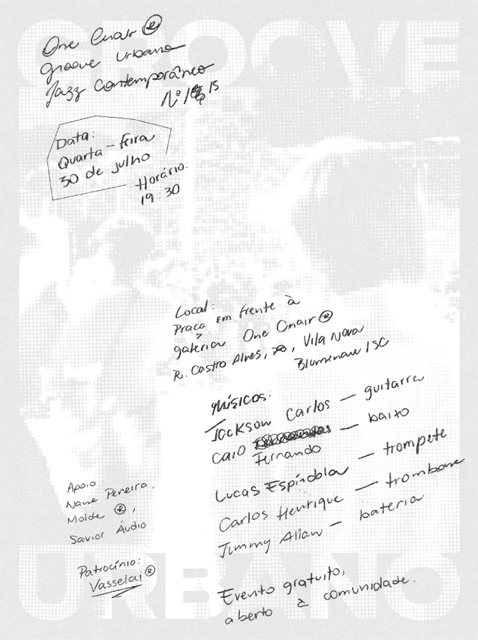 GROOVE
One Chair ®
Groove Urbano
Jazz Contemporâneo
Nº 15
Data:
Quarta-feira
30 de julho
Horário:
19:30
Local:
Praça em frente à
galeria One Chair ®
R. Castro Alves, , Vila Nova
Blumenau/SC
Músicos:
Jackson Carlos — guitarra
Caio Fernando — baixo
Lucas Espíndola — trompete
Carlos Henrique — trombone
Jimmy Allan — bateria
Apoio
Pereira,
Molde ®,
Savior Áudio
Patrocínio:
Vasselai ®
Evento gratuito,
aberto à comunidade.
URBANO